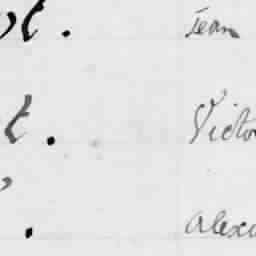 t. Jean
t. Victo
. alex